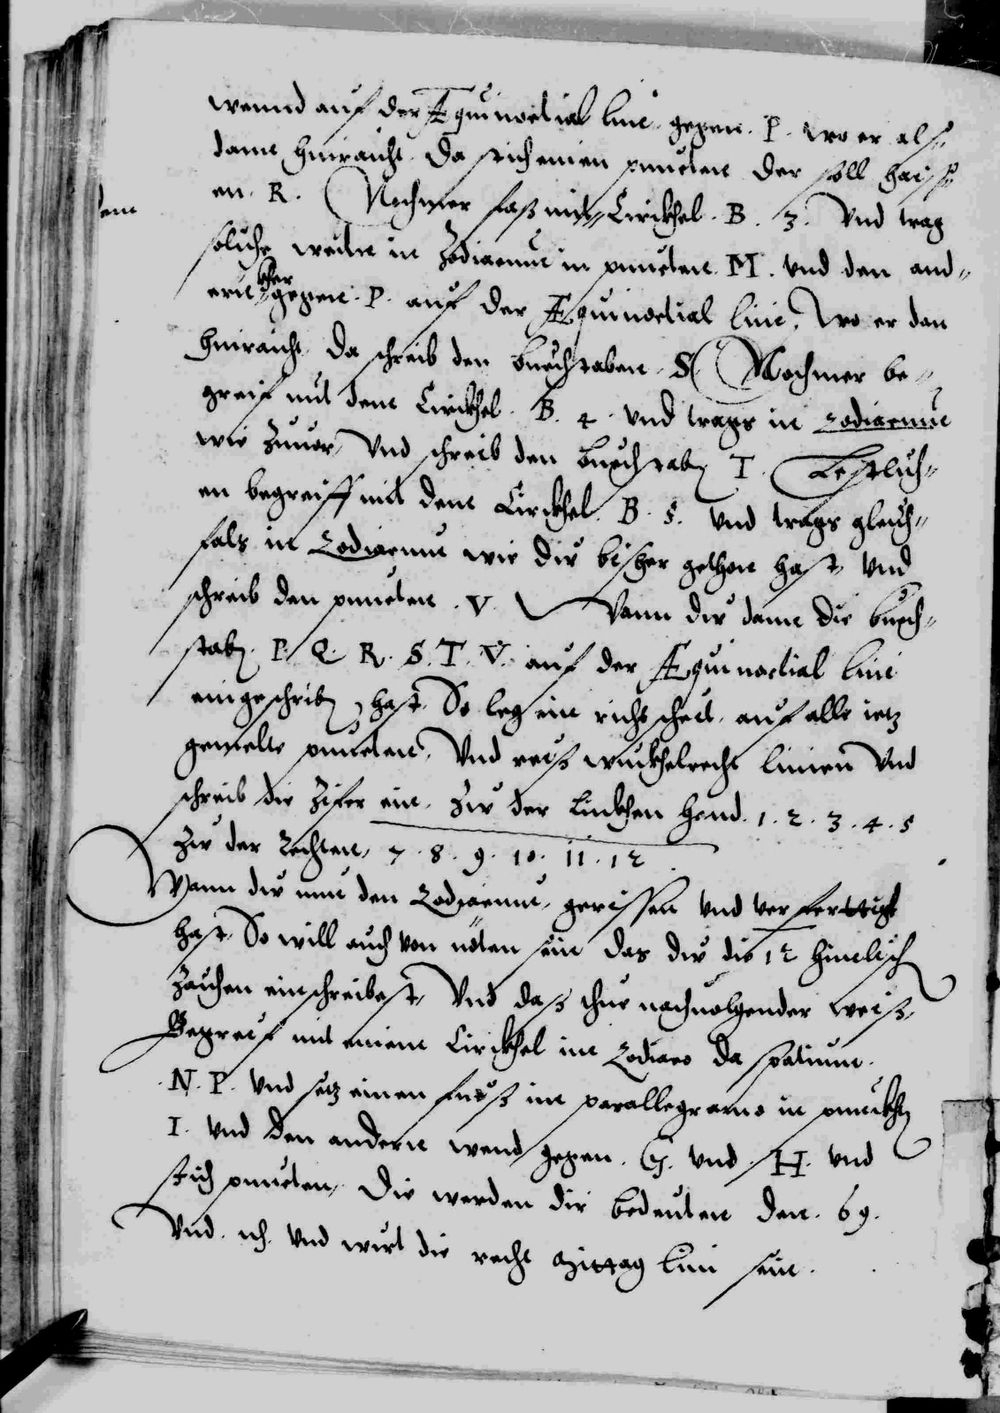 wennd auf der Æquinoctial lini gegen. P. wo er als,,
dann hinraicht. Da stich einen puncten der soll haiss,,
en. R. Nochmer fass mit Circkhel. B. 3. Vnd trag
solche weiten in Zodiacum in puncten. M. vnd den and,,
ern fuess gegen. P. auf der Æquinoctial lini, wo er dan
hinraicht, Da schreib den buechstaben. S. Nochmer be,,
greif mit dem Circkhel. B. 4. vnd trags in Zodiacum
wie Zuuor, Vnd schreib den buechstab T. Letstlich,,
en begreiff mit dem Circkhel. B. 5. vnd trags gleich,,
fals in Zodiacum wie du bisher gethon hast, vnd
schreib den puncten. V. Wann du dann die buech,,
stab. P. Q. R. S. T. V. auf der Æquinoctial lini
eingeschrib hast, So leg ein richtscheit, auf alle ietz
gemelte puncten, Vnd reiß winckhelrecht linien Vnd
schreib die Zifer ein. Zu der Linckhen hand. 1. 2. 3. 4. 5
Zu der Rechten, 7. 8. 9. 10. 11. 12
Wann du nun den Zodiacum, gerissen vnd verfertigt
hast, So will auch von nöten sein das du die 12 himlisch
Zaichen einschreibest, Vnd daß thue nachuolgender weiß,
Begreif mit einem Circkhel im Zodiaco da spatium.
N. P. vnd setz einen fueß im parallegramo in punckht
I. vnd den andern wend gegen. G. vnd. H. vnd
stich puncten, Die werden dir bedeuten den. 69.
Vnd. vnd wirt die recht Mittag lini sein.